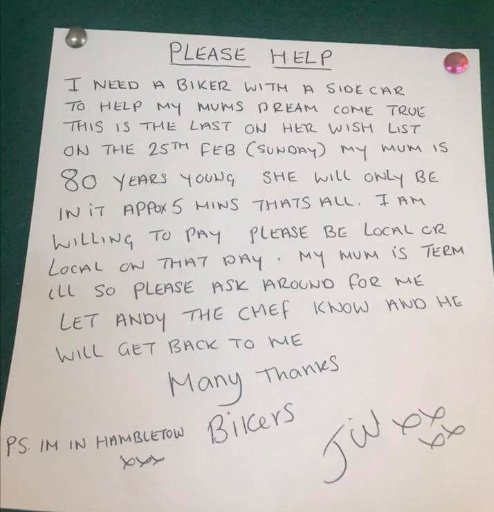 PLEASE HELP
I NEED A BIKER WITH A SIDECAR
TO HELP MY MUMS DREAM COME TRUE
THIS IS THE LAST ON HER WISH LIST
ON THE 25TH FEB (SUNDAY) MY MUM IS
80 YEARS YOUNG SHE WILL ONLY BE
IN IT APPOX 5 MINS THATS ALL. I AM
WILLING TO PAY PLEASE BE LOCAL OR
LOCAL ON THAT DAY. MY MUM IS TERM
ILL SO PLEASE ASK AROUND FOR ME
LET ANDY THE CHEF KNOW AND HE
WILL GET BACK TO ME
Many Thanks
Bikers
PS. IM IN HAMBLETOW
xxx
Jill xx
xx